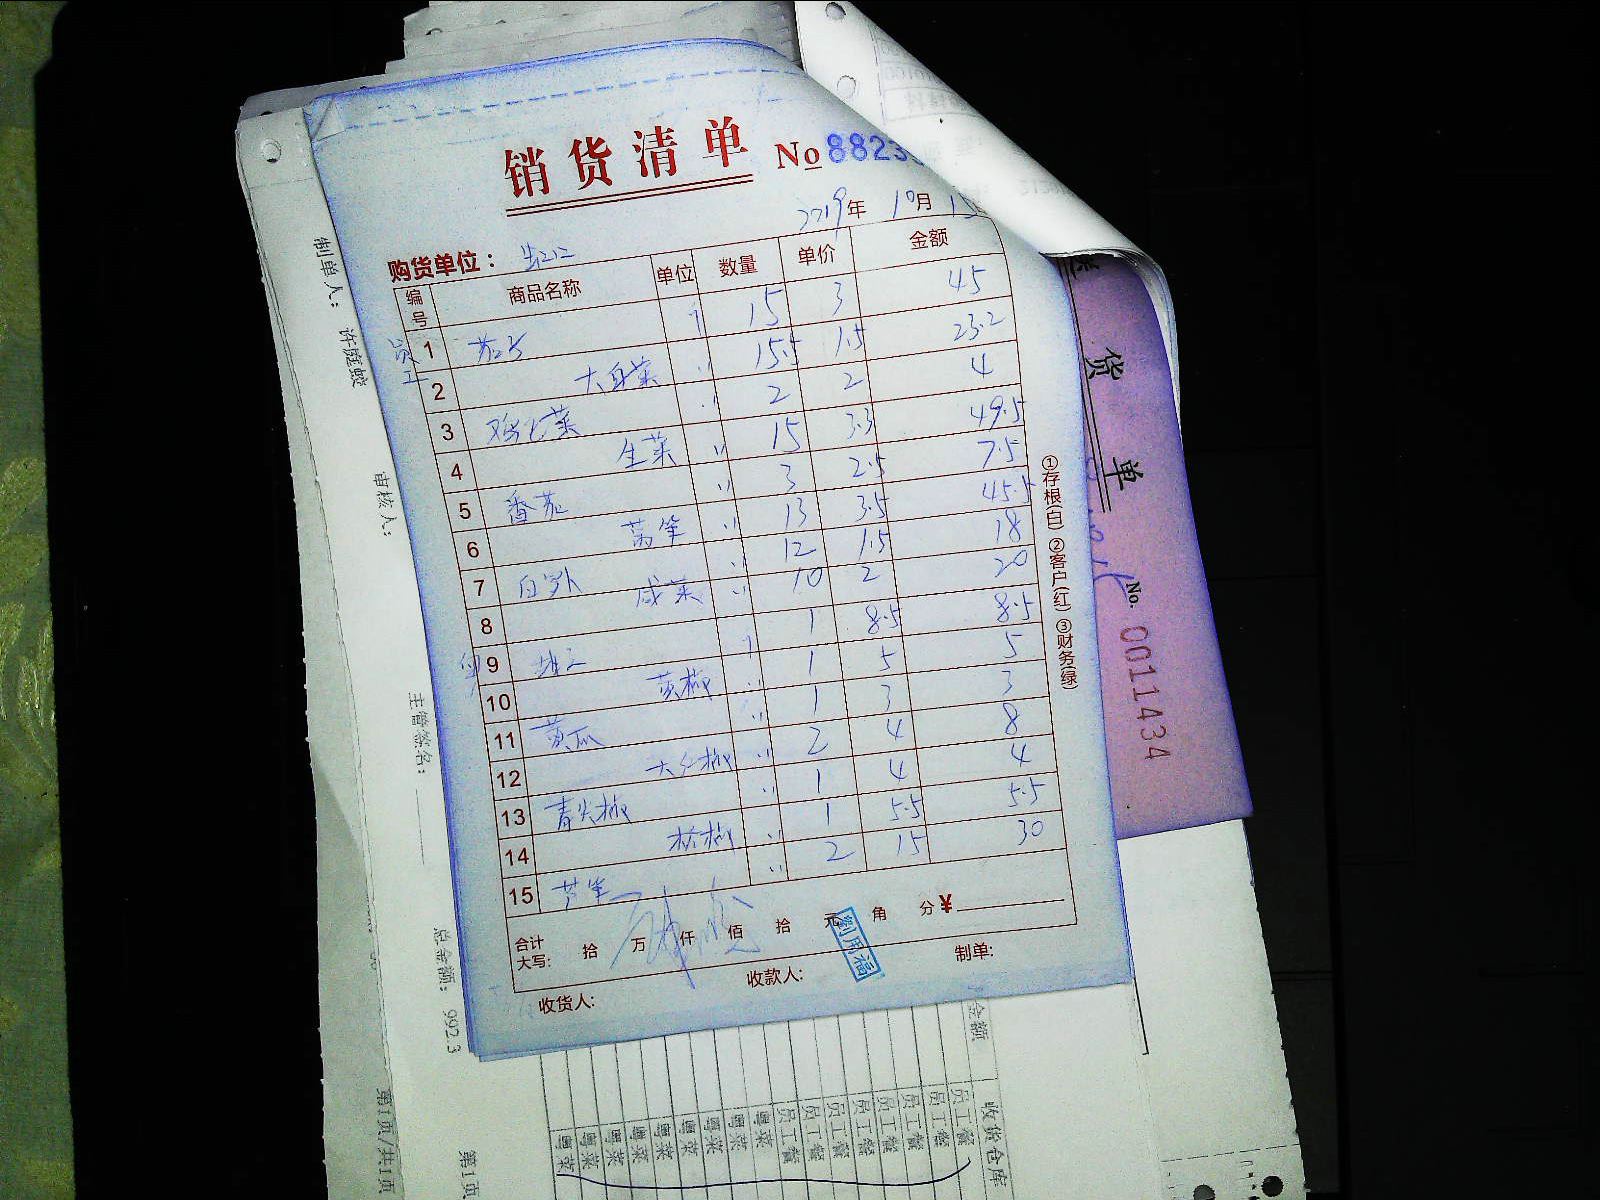 销货清单 No 8823
2019年 10月
购货单位：
编号 商品名称 单位 数量 单价 金额
员工
1 15 3 45
2 大白菜 15.5 1.5 23.2
3 2 2 4
4 生菜 15 3.3 49.5
5 番茄 3 2.5 7.5
6 莴笋 13 3.5 45.5
7 白罗卜 12 1.5 18
8 咸菜 10 2 20
9 1 8.5 8.5
10 1 5 5
11 黄瓜 1 3 3
12 大红椒 2 4 8
13 青尖椒 1 4 4
14 杭椒 1 5.5 5.5
15 芦笋 2 15 30
合计大写: 拾 万 仟 佰 拾 元 角 分 ¥
收货人: 收款人: 制单:
刘周福
①存根(白) ②客户(红) ③财务(绿)
制单人: 许庭蛟
审核人:
主管签名:
总金额: 992.3
第1页/共1页
第1页
货 单
No. 0011434
金额
收货仓库
员工餐
员工餐
员工餐
员工餐
员工餐
员工餐
员工餐
员工餐
粤菜
粤菜
粤菜
粤菜
粤菜
粤菜
粤菜
粤菜
粤菜